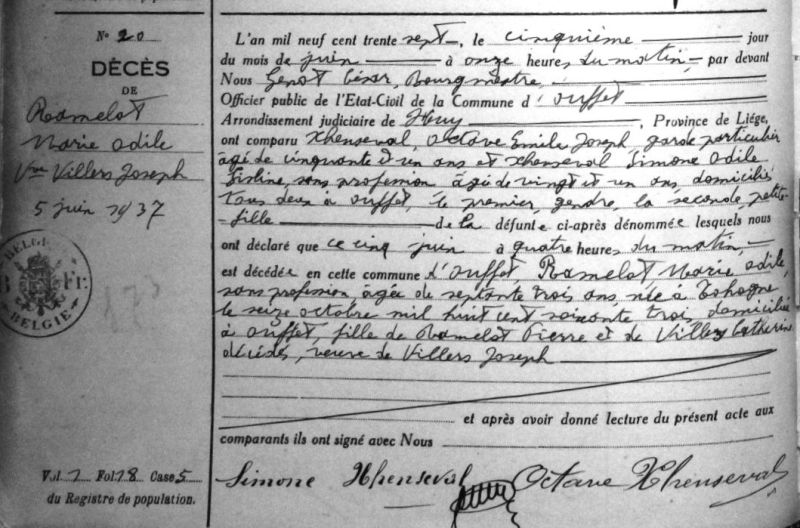 N° 20
DÉCÈS
DE
Ramelot
Marie Odile
Vve Villers Joseph
5 juin 1937
BELGIE
B Fr.
BELGIE
Vol 1 Fol 18 Case 5
du Registre de population.
L'an mil neuf cent trente sept, le cinquième jour
du mois de juin à onze heures du matin, par devant
Nous Genot César, Bourgmestre,
Officier public de l'Etat-Civil de la Commune d'Ouffet
Arrondissement judiciaire de Huy, Province de Liége,
ont comparu Xhenseval, Octave Emile Joseph, garde particulier
âgé de cinquante et un ans et Xhenseval Simone Odile
Gisline, sans profession âgée de vingt et un ans, domiciliés
tous deux à Ouffet, le premier, gendre, la seconde, petite-
fille de la défunte ci-après dénommée lesquels nous
ont déclaré que ce cinq juin à quatre heures du matin,
est décédée en cette commune d'Ouffet, Ramelot Marie Odile,
sans profession, âgée de septante trois ans, née à Tohogne
le seize octobre mil huit cent soixante trois, domiciliée
à Ouffet, fille de Ramelot Pierre et de Villers Catherine
décédés, veuve de Villers Joseph
et après avoir donné lecture du présent acte aux
comparants ils ont signé avec Nous
Simone Xhenseval Octave Xhenseval